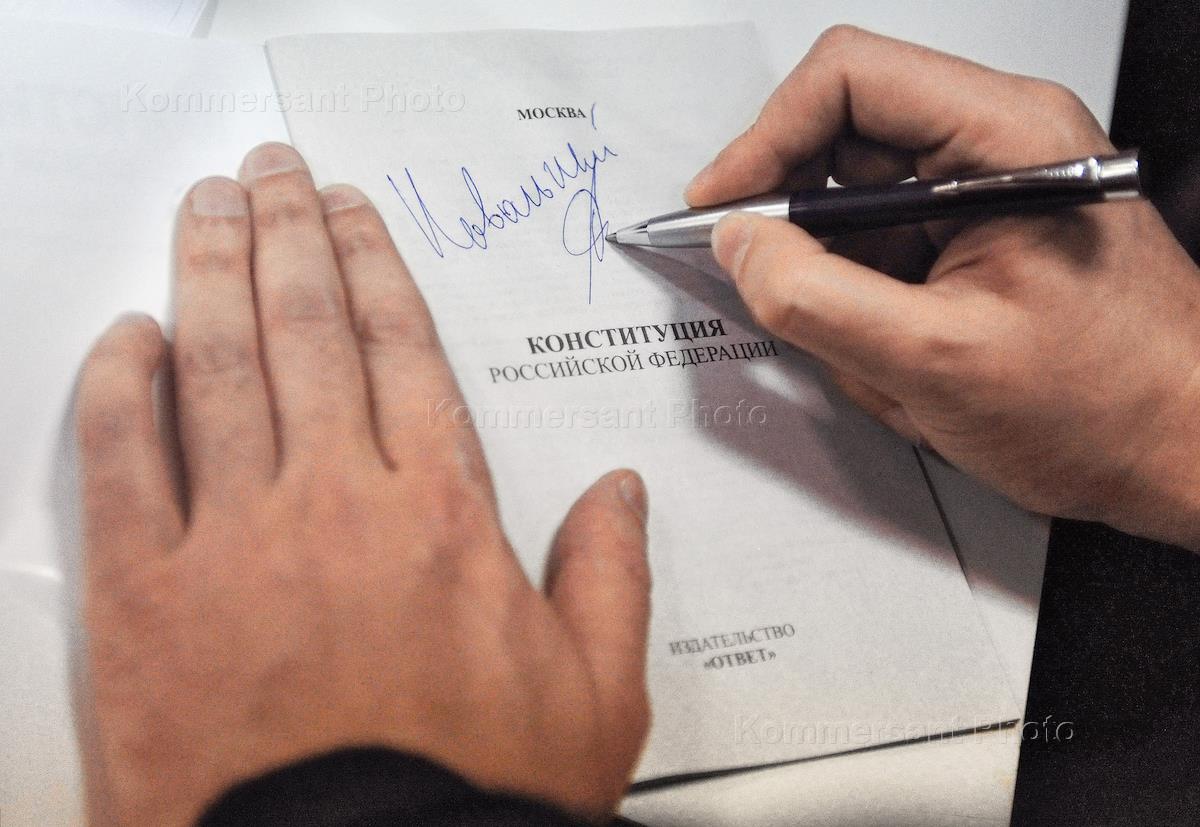 Kommersant Photo
МОСКВА
КОНСТИТУЦИЯ
РОССИЙСКОЙ ФЕДЕРАЦИИ
Kommersant Photo
ИЗДАТЕЛЬСТВО
«ОТВЕТ»
Kommersant Photo